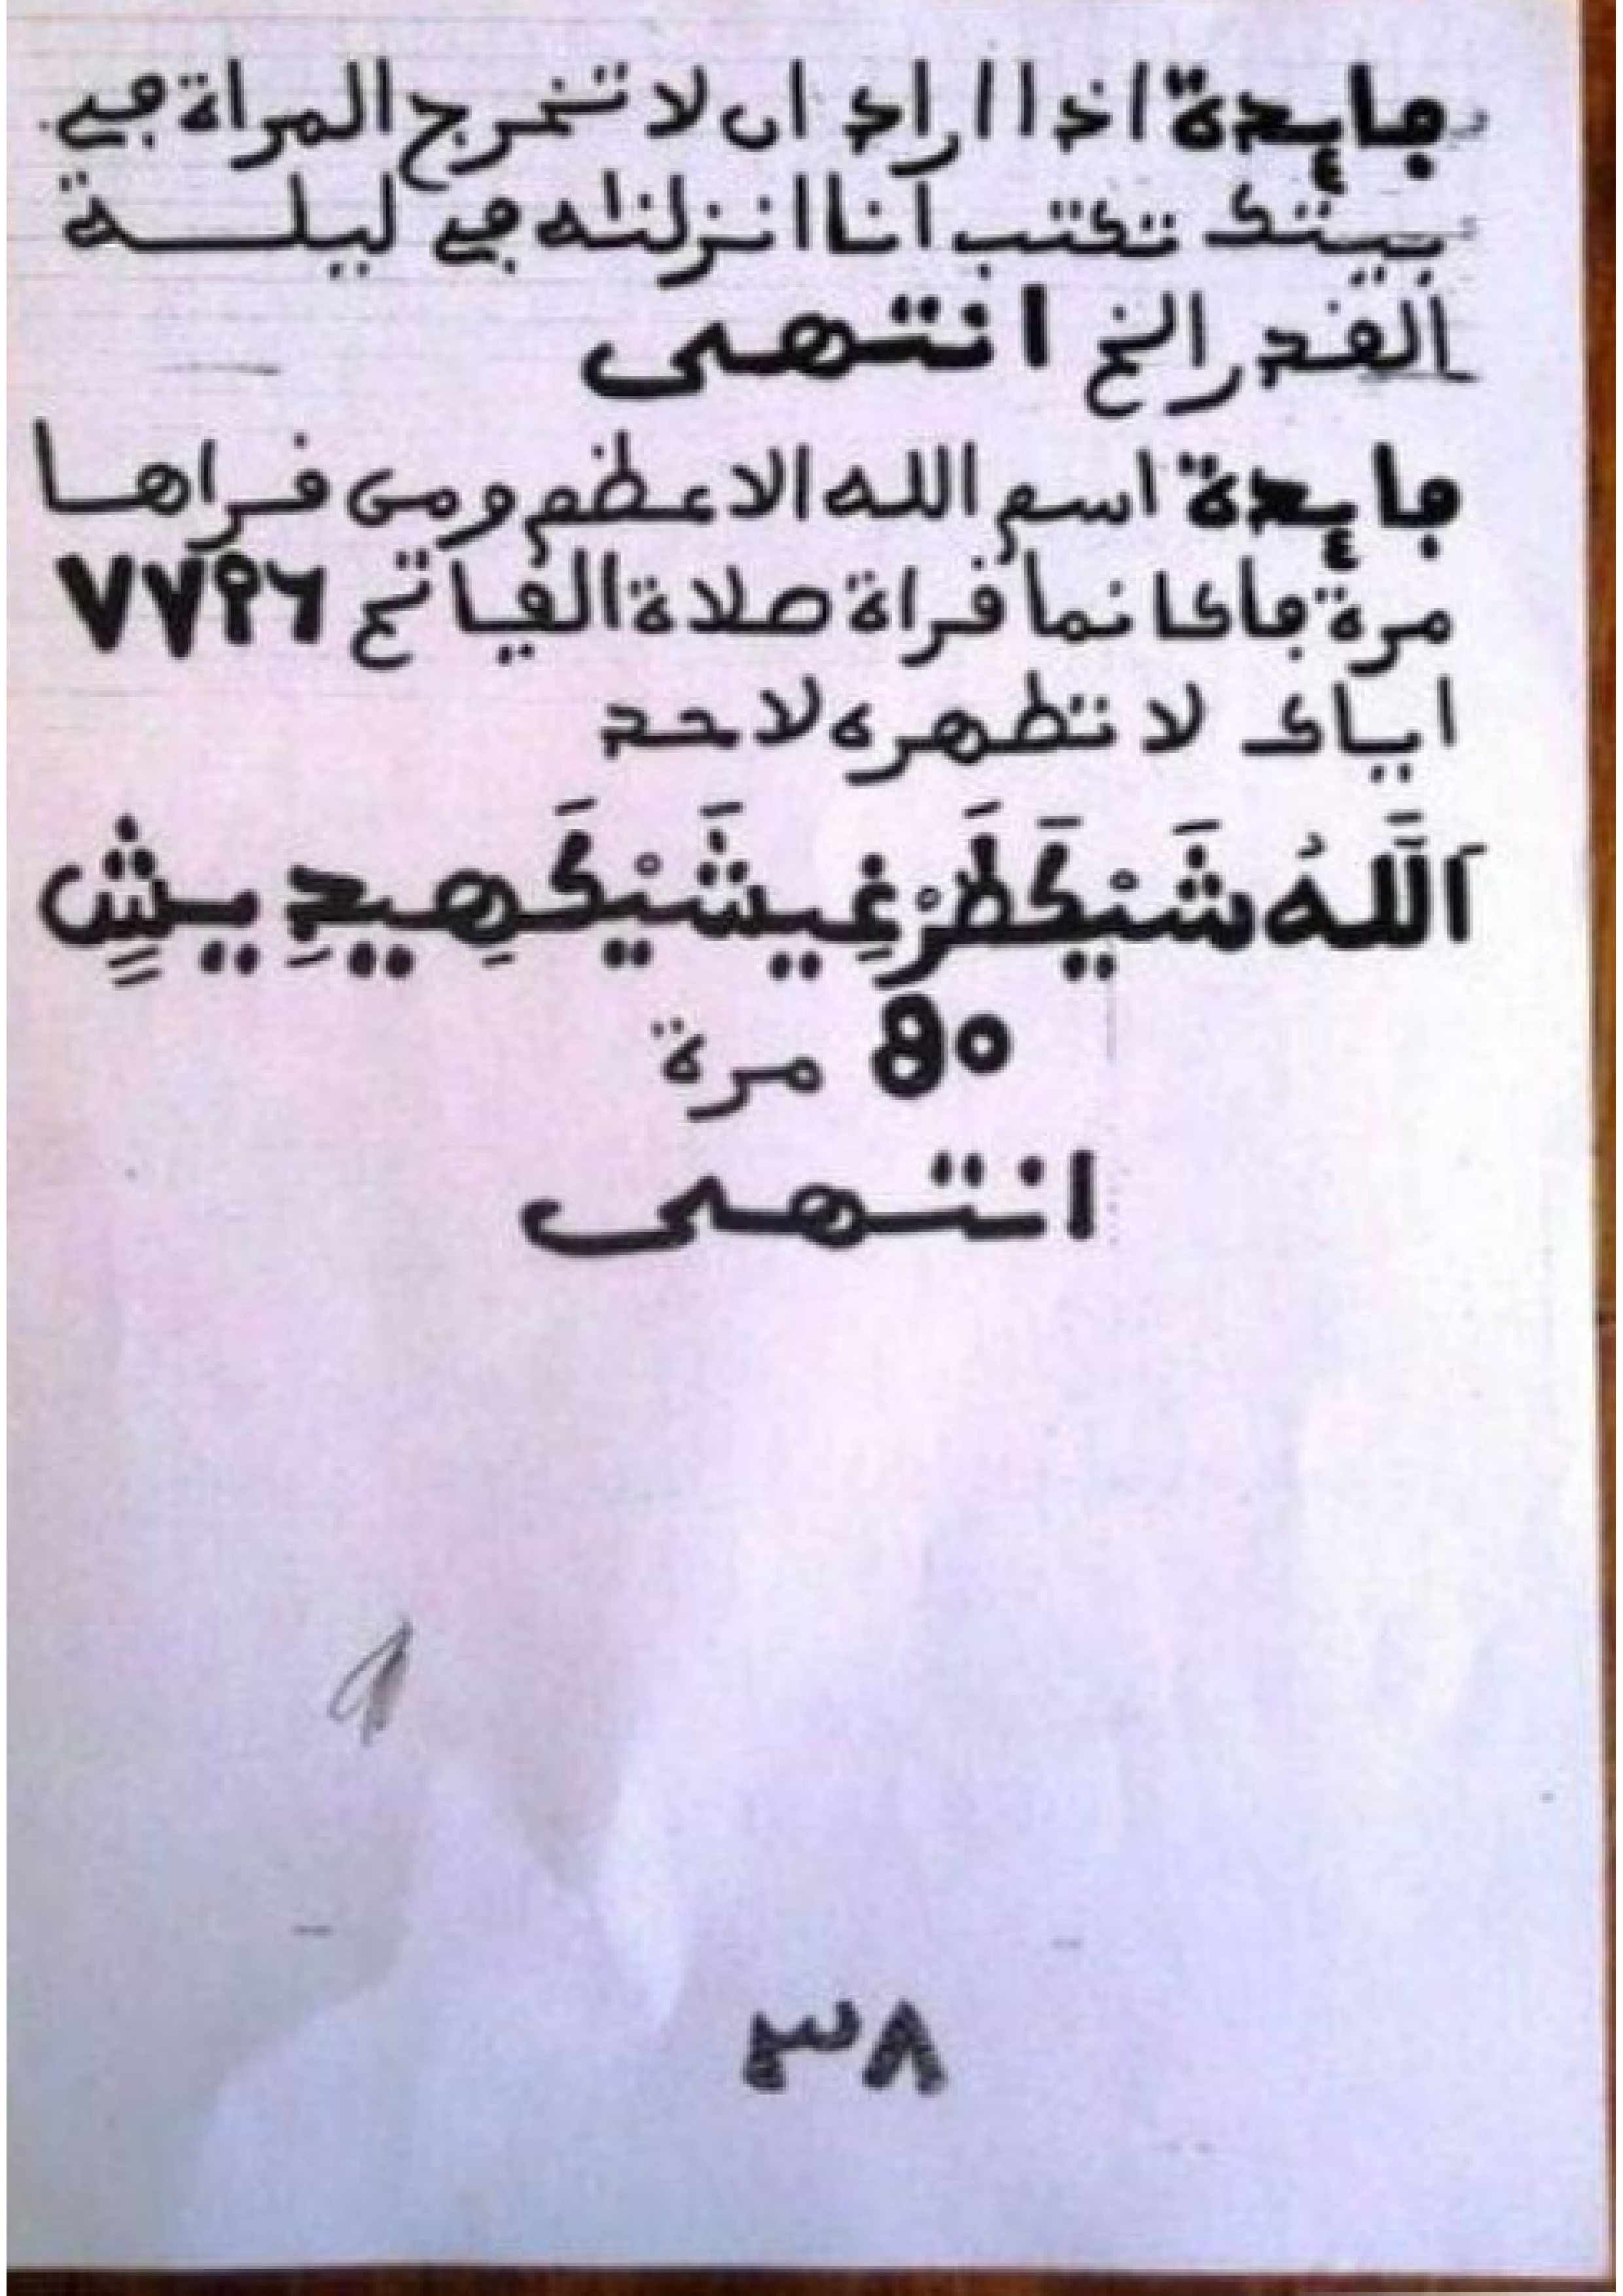 فايدة اذا اراد ان لا تخرج المراة في
بيتك تكتب انا انزلنه في ليلة
القدر الخ انتهى
فايدة اسم الله الاعظم ومن قراها
مرة فاكانما قراة صلاة الفياتح ٧٧٩٦
اياك لا تظهره لاحد
اَللَّهُ شَيْكَطَرْغِيشَيْكَهِيدِيشٍ
80 مرة
انتهى
٣٨